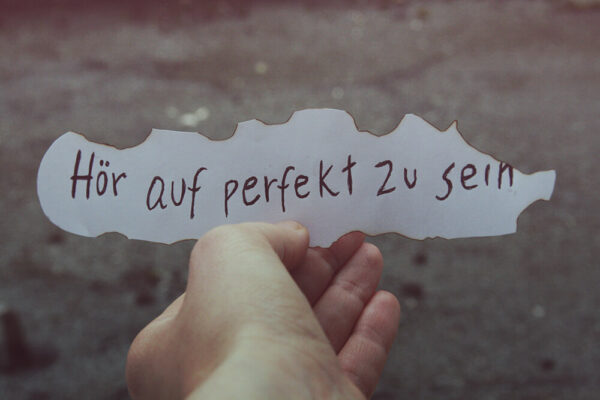 Hör auf perfekt zu sein